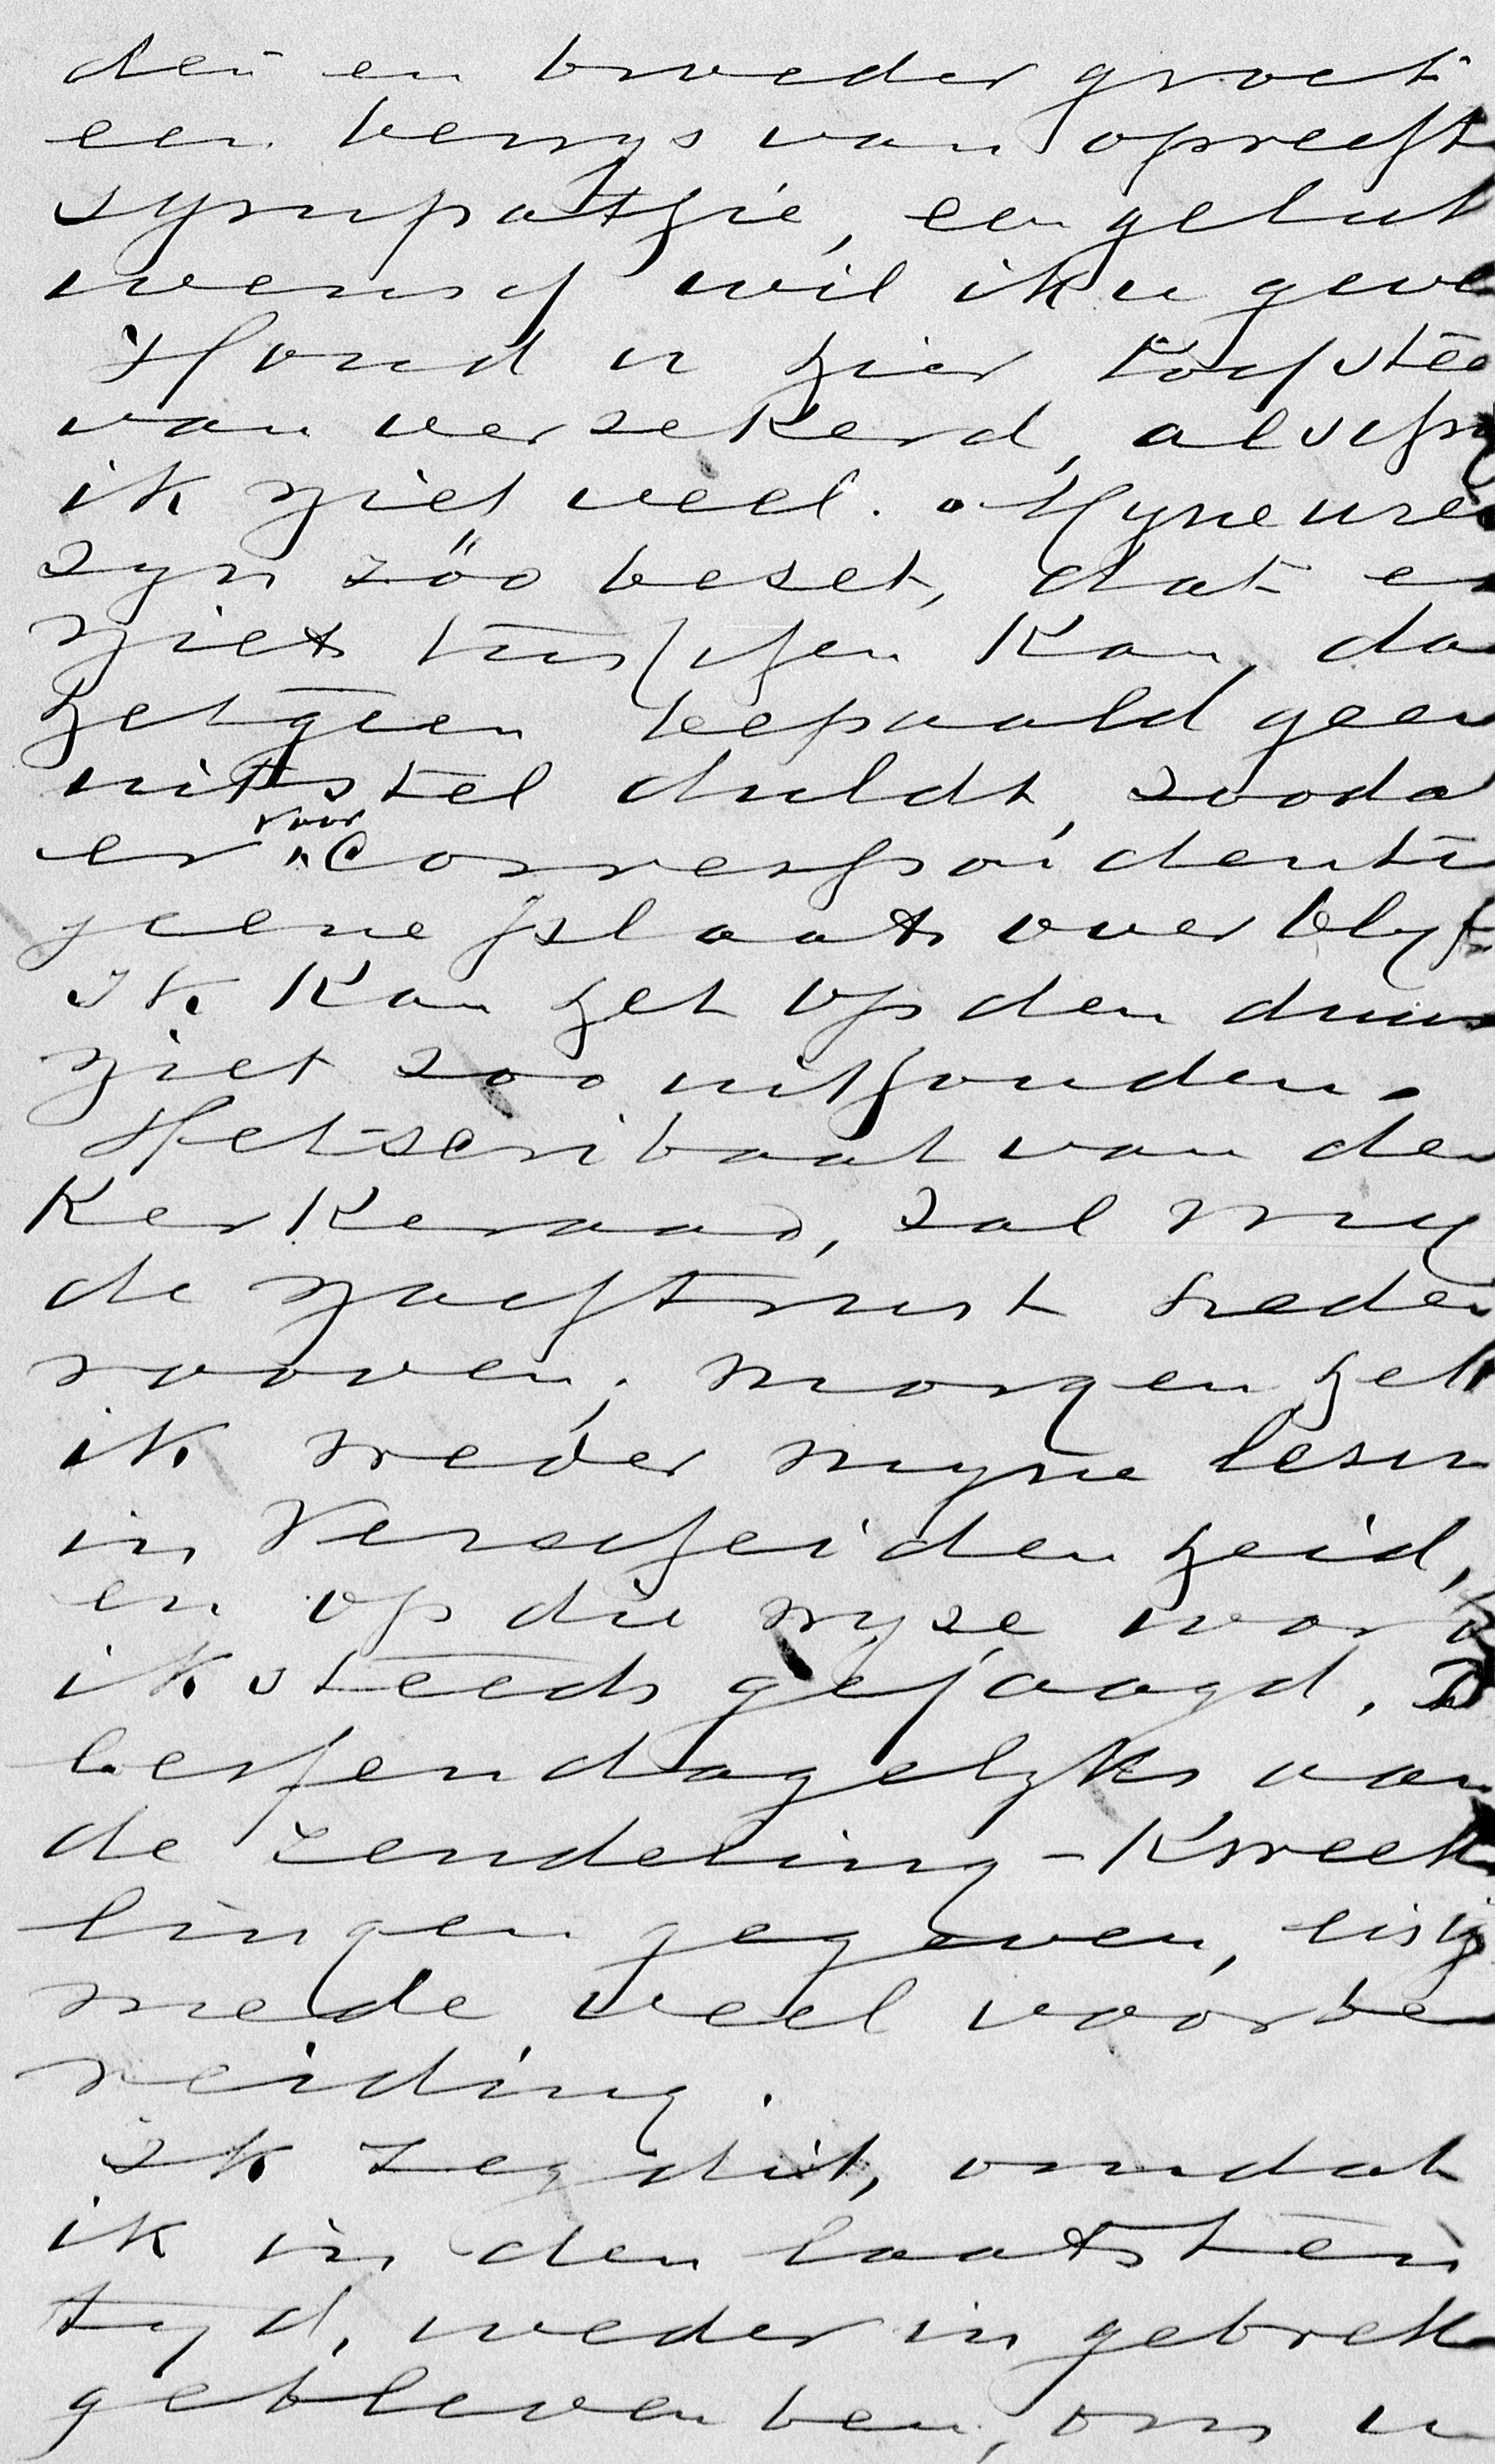 den en broeder groet
een bewys van oprecht
sympathie, een geluk
wensch wil ik u geve
Houd u hier toch stee
van verzekerd, al schr
ik niet veel. Myne ure
zyn zóó bezet, dat er
niet tusschen kan, da
hetgeen bepaald geen
uitstel duldt, zooda
er voor Correspondenti
geene plaats overblyf
Ik kan het op den duur
niet zoo uithouden.
Het scribaat van den
Kerkeraad, zal my
de nachtrust heden
rooven; morgen heb
ik weder myne lesse
in Verscheidenheid,
en op die wyze word
ik steeds gejaagd. D
lessen dagelyks aan
de Zendeling-Kweek
lingen gegeven, eisch
mede veel voorbe
reiding.
Ik zeg dit, omdat
ik in den laatsten
tyd, weder in gebrek
gebleven ben, om u